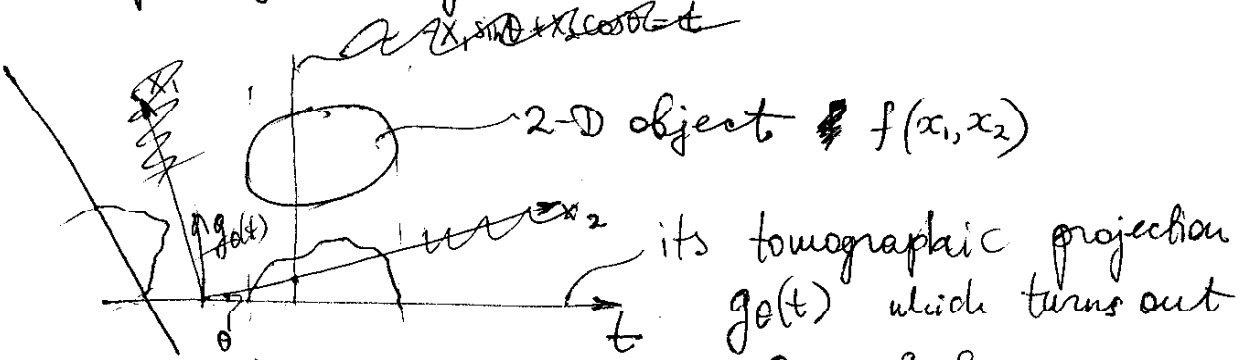 x₁ sinθ + x₂ cosθ = t
x₁
2-D object f(x₁, x₂)
g_θ(t)
x₂
its tomographic projection
θ
t
g_θ(t) which turns out